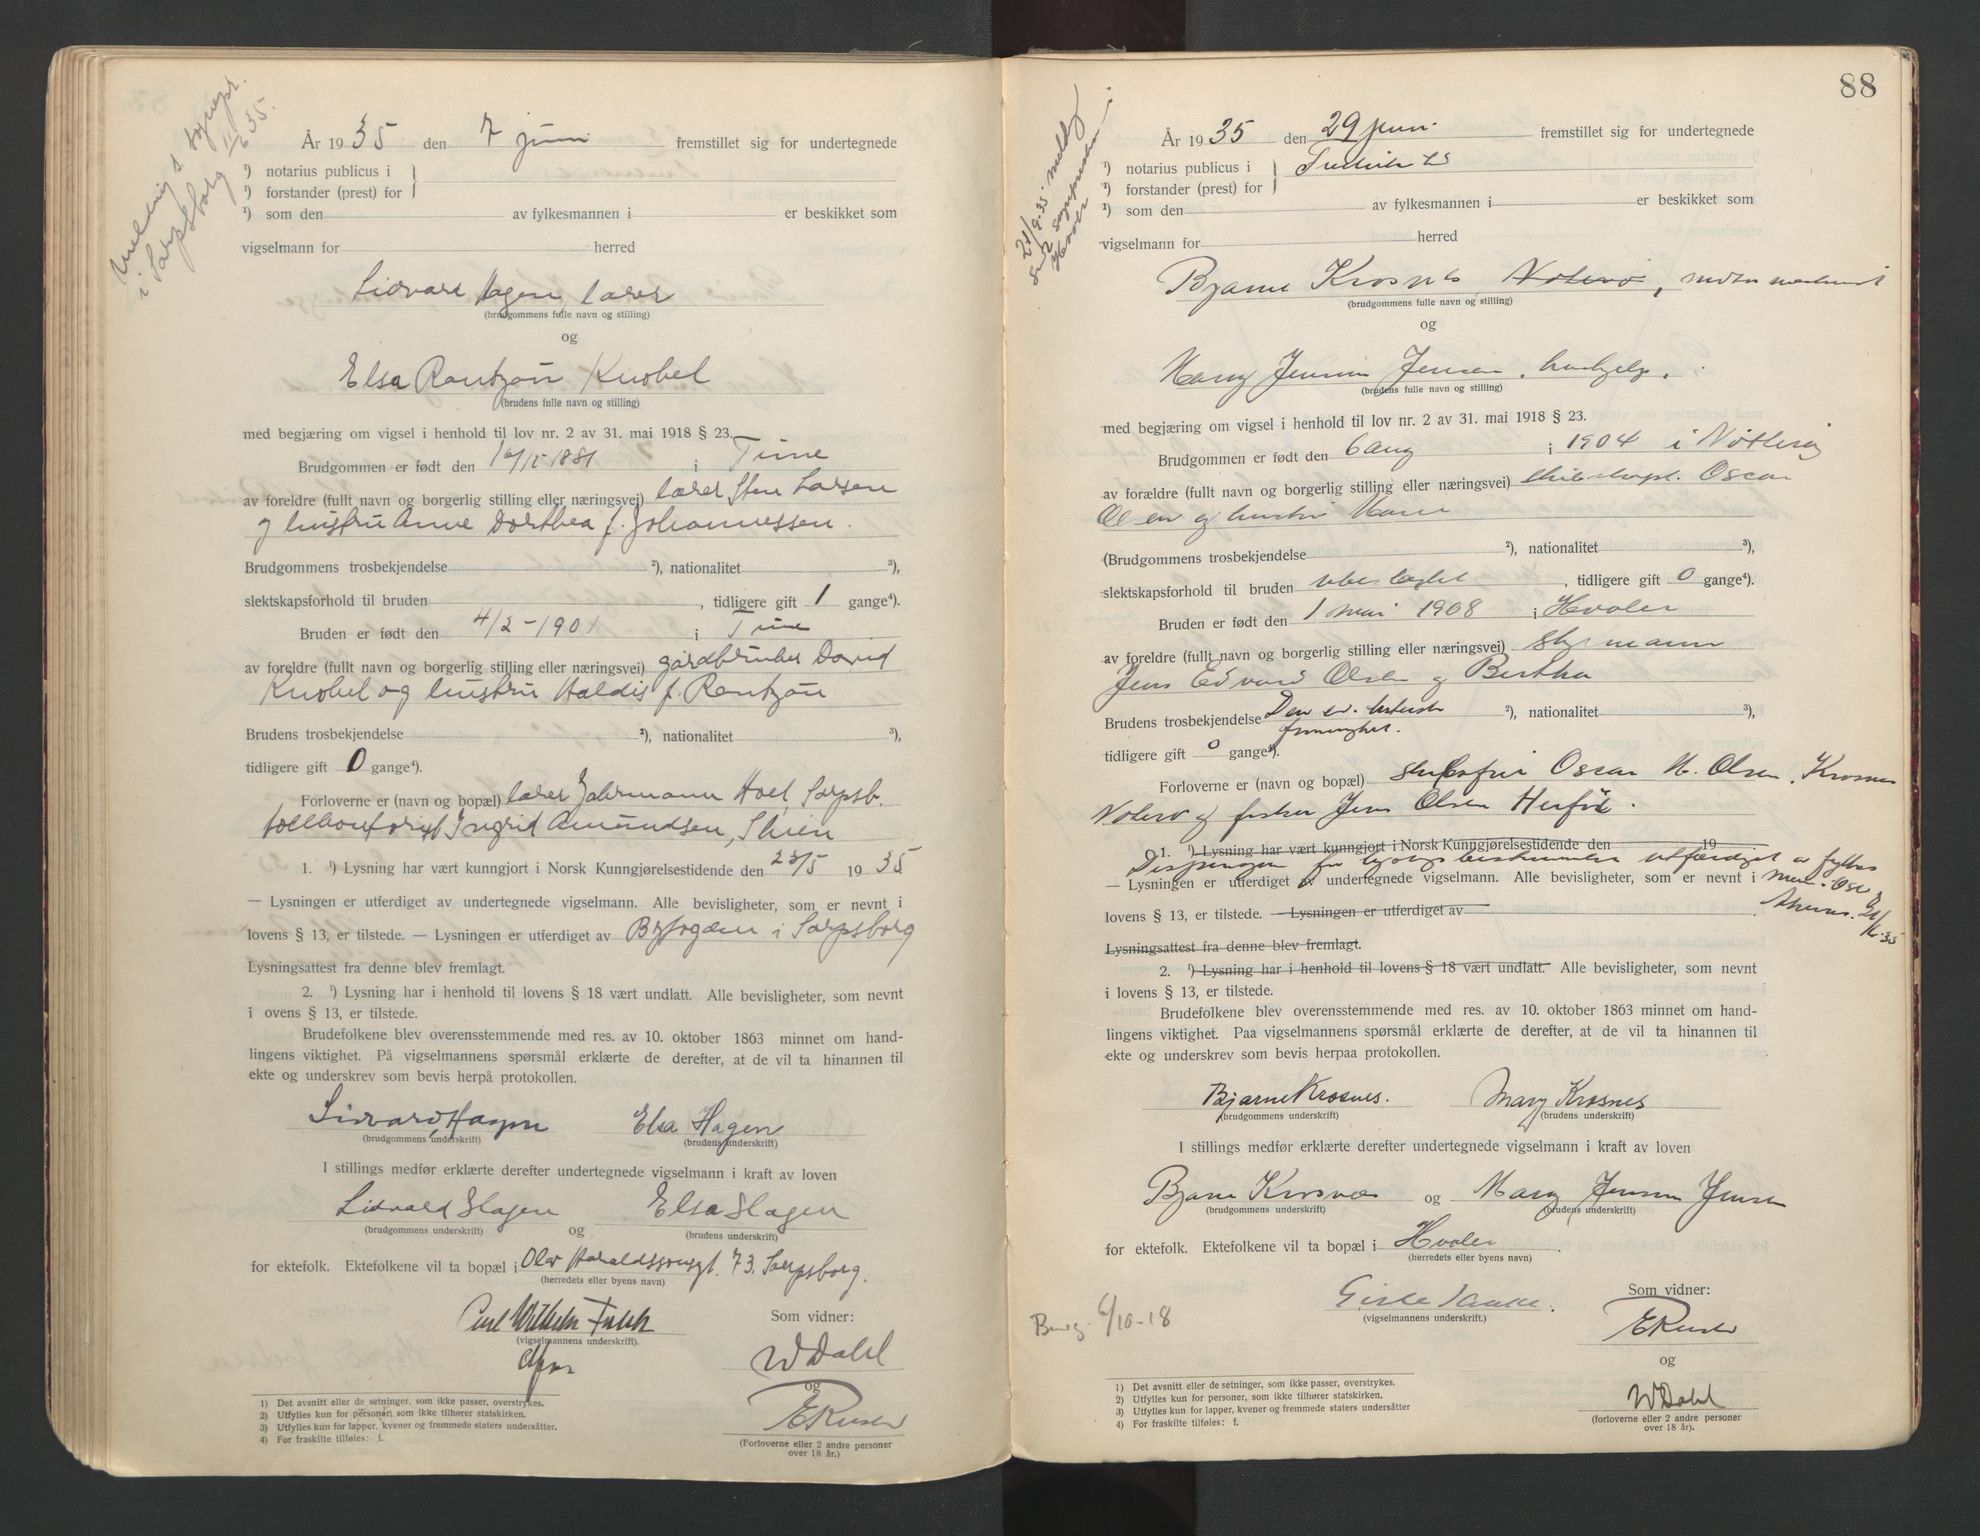 i Sarpsborg 11/6 35.
År 1935 den 7 juni fremstillet sig for undertegnede
¹) notarius publicus i
¹) forstander (prest) for
¹) som den av fylkesmannen i er beskikket som
vigselmann for herred
Sidvard Hagen, lærer
(brudgommens fulle navn og stilling)
og
Elsa Rantzau Knobel
(brudens fulle navn og stilling)
med begjæring om vigsel i henhold til lov nr. 2 av 31. mai 1918 § 23.
Brudgommen er født den 1881 i Tune
av foreldre (fullt navn og borgerlig stilling eller næringsvei) lærer Sten Larsen
og hustru Anne Dorthea f. Johannessen.
Brudgommens trosbekjendelse ²), nationalitet ³),
slektskapsforhold til bruden , tidligere gift 1 gange⁴).
Bruden er født den 4/2-1901 i Tune
av foreldre (fullt navn og borgerlig stilling eller næringsvei) gårdbruker David
Knobel og hustru Haldis f. Rantzau
Brudens trosbekjendelse ²), nationalitet ³),
tidligere gift 0 gange⁴).
Forloverne er (navn og bopæl) lærer Hoel, Sarpsb.
Ingrid Amundsen, Skien
1. ¹) Lysning har vært kunngjort i Norsk Kunngjørelsestidende den 23/5 1935
— Lysningen er utferdiget av undertegnede vigselmann. Alle bevisligheter, som er nevnt i
lovens § 13, er tilstede. — Lysningen er utferdiget av Byfogden i Sarpsborg
Lysningsattest fra denne blev fremlagt.
2. ¹) Lysning har i henhold til lovens § 18 vært undlatt. Alle bevisligheter, som nevnt
i ovens § 13, er tilstede.
Brudefolkene blev overensstemmende med res. av 10. oktober 1863 minnet om hand-
lingens viktighet. På vigselmannens spørsmål erklærte de derefter, at de vil ta hinannen til
ekte og underskrev som bevis herpå protokollen.
Sidvard Hagen Elsa Hagen
(brudgommens underskrift) (brudens underskrift)
I stillings medfør erklærte derefter undertegnede vigselmann i kraft av loven
Sidvald Hagen og Elsa Hagen
(brudgommens underskrift) (brudens underskrift)
for ektefolk. Ektefolkene vil ta bopæl i Olav Haraldssonsgt. 73. Sarpsborg.
(herredets eller byens navn)
Carl Wilhelm Falck Som vidner:
(vigselmannens underskrift).
W Dahl
og
(Forloverne eller 2 andre personer
over 18 år.)
1) Det avsnitt eller de setninger, som ikke passer, overstrykes.
2) Utfylles kun for personer, som ikke tilhører statskirken.
3) Utfylles kun for lapper, kvener og fremmede staters undersåtter.
4) For fraskilte tilføies: f.
88
21/9.35 melding
Hvaler
År 1935 den 29 juni fremstillet sig for undertegnede
¹) notarius publicus i
¹) forstander (prest) for
¹) som den av fylkesmannen i er beskikket som
vigselmann for herred
Bjarne Krosnes Nøterø,
(brudgommens fulle navn og stilling)
og
Mary Jensine Jensen, hushjelp,
(brudens fulle navn og stilling)
med begjæring om vigsel i henhold til lov nr. 2 av 31. mai 1918 § 23.
Brudgommen er født den 6 aug i 1904 i Nøtterøy
av forældre (fullt navn og borgerlig stilling eller næringsvei) Oscar
Olsen og hustru
(Brudgommens trosbekjendelse ²), nationalitet ³),
slektskapsforhold til bruden ubeslægtet , tidligere gift 0 gange⁴).
Bruden er født den 1 mai 1908 i Hvaler
av foreldre (fullt navn og borgerlig stilling eller næringsvei) styrmann
Jens Edvard Olsen og Bertha
Brudens trosbekjendelse Den ev. lutherske ²), nationalitet ³),
tidligere gift 0 gange⁴).
Forloverne er (navn og bopæl) Oscar M. Olsen, Krosnes
Nøterø og fisker Jens Olsen Herføl.
1. ¹) Lysning har vært kunngjort i Norsk Kunngjørelsestidende den 19
— Lysningen er utferdiget av undertegnede vigselmann. Alle bevisligheter, som er nevnt i
lovens § 13, er tilstede. — Lysningen er utferdiget av
Lysningsattest fra denne blev fremlagt.
2. ¹) Lysning har i henhold til lovens § 18 vært undlatt. Alle bevisligheter, som nevnt
i lovens § 13, er tilstede.
Brudefolkene blev overensstemmende med res. av 10. oktober 1863 minnet om hand-
lingens viktighet. Paa vigselmannens spørsmål erklærte de derefter, at de vil ta hinannen til
ekte og underskrev som bevis herpaa protokollen.
Bjarne Krosnes. Mary Krosnes
(brudgommens underskrift) (brudens underskrift)
I stillings medfør erklærte derefter undertegnede vigselmann i kraft av loven
Bjarne Krosnæs og Mary Jensine Jensen
(brudgommens underskrift) (brudens underskrift)
for ektefolk. Ektefolkene vil ta bopæl i Hvaler
(herredets eller byens navn)
6/10-18 Som vidner:
(vigselmannens underskrift.)
og
W Dahl
(forloverne eller 2 andre personer
over 18 år).
1) Det avsnitt eller de setninger, som ikke passer, overstrykes.
2) Utfylles kun for personer, som ikke tilhører statskirken.
3) Utfylles kun for lapper, kvener og fremmede staters undersåtter
4) For fraskilte tilføies: f.